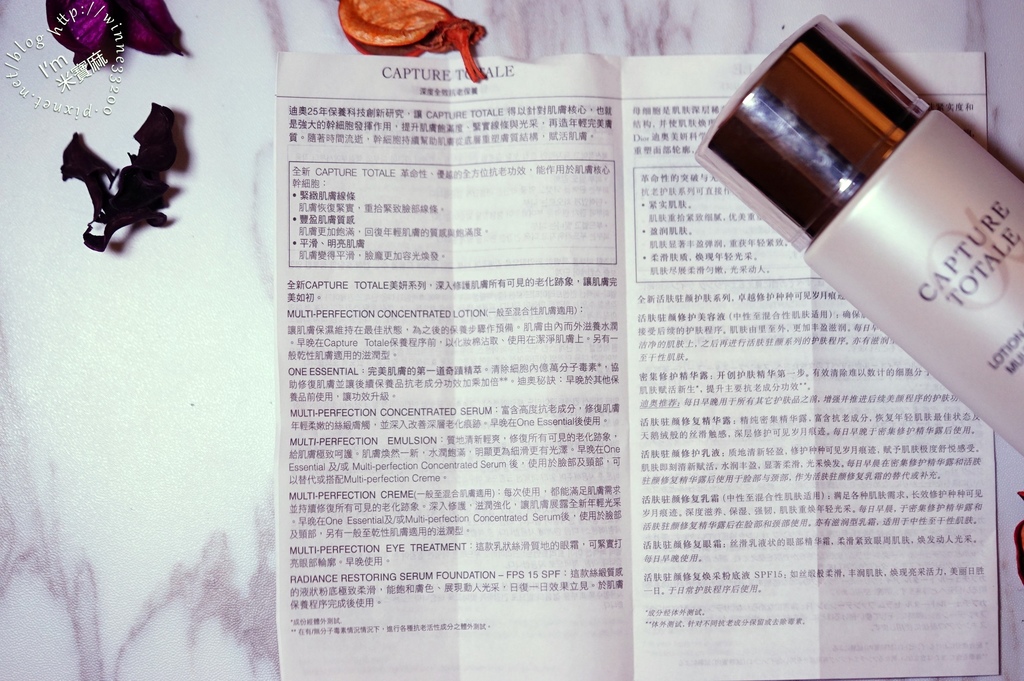 http://winnie33200.pixnet.net/blog
I'm
米寶麻
CAPTURE TOTALE
深度全效抗老保養
迪奧25年保養科技創新研究，讓 CAPTURE TOTALE 得以針對肌膚核心，也就
是強大的幹細胞發揮作用，提升肌膚飽滿度、緊實線條與光采，再造年輕完美膚
質。隨著時間流逝，幹細胞持續幫助肌膚從底層重塑膚質結構，賦活肌膚。
全新 CAPTURE TOTALE 革命性、優越的全方位抗老功效，能作用於肌膚核心
幹細胞：
• 緊緻肌膚線條
肌膚恢復緊實，重拾緊致臉部線條。
• 豐盈肌膚質感
肌膚更加飽滿，回復年輕肌膚的質感與飽滿度。
• 平滑、明亮肌膚
肌膚變得平滑，臉龐更加容光煥發。
全新CAPTURE TOTALE美妍系列，深入修護肌膚所有可見的老化跡象，讓肌膚完
美如初。
MULTI-PERFECTION CONCENTRATED LOTION(一般至混合性肌膚適用)：
讓肌膚保濕維持在最佳狀態，為之後的保養步驟作預備。肌膚由內而外滋養水潤
。早晚在Capture Totale保養程序前，以化妝棉沾取、使用在潔淨肌膚上。另有一
般乾性肌膚適用的滋潤型。
ONE ESSENTIAL：完美肌膚的第一道奇蹟精萃。清除細胞內億萬分子毒素*，協
助修復肌膚並讓後續保養品抗老成分功效加乘加倍**。迪奧秘訣：早晚於其他保
養品前使用，讓功效升級。
MULTI-PERFECTION CONCENTRATED SERUM：富含高度抗老成分，修復肌膚
年輕柔嫩的絲緞膚觸，並深入改善深層老化痕跡。早晚在One Essential後使用。
MULTI-PERFECTION EMULSION：質地清新輕爽，修復所有可見的老化跡象，
給肌膚極致呵護。肌膚煥然一新，水潤飽滿，明顯更為細滑更有光澤。早晚在One
Essential 及/或 Multi-perfection Concentrated Serum 後，使用於臉部及頸部，可
以替代或搭配Multi-perfection Creme。
MULTI-PERFECTION CREME(一般至混合肌膚適用)：每次使用，都能滿足肌膚需求
並持續修復所有可見的老化跡象。深入修護，滋潤強化，讓肌膚展露全新年輕光采
。早晚在One Essential及/或Multi-perfection Concentrated Serum後，使用於臉部
及頸部，另有一般至乾性肌膚適用的滋潤型。
MULTI-PERFECTION EYE TREATMENT：這款乳狀絲滑質地的眼霜，可緊實打
亮眼部輪廓。早晚使用。
RADIANCE RESTORING SERUM FOUNDATION – FPS 15 SPF：這款絲緞質感
的液狀粉底極致柔滑，能飽和膚色、展現動人光采，日復一日效果立見。於肌膚
保養程序完成後使用。
*成份經體外測試.
** 在有/無分子毒素情況情況下，進行各種抗老活性成分之體外測試.
母细胞是肌肤深层稀
紧实度和
结构，并使肌肤焕
Dior 迪奥美妍科学
重塑面部轮廓，
革命性的突破与
抗老护肤系列可直接作
• 紧实肌肤。
肌肤重拾紧致细腻，优美重
• 盈润肌肤。
肌肤显著丰盈弹润，重获年轻紧致。
• 柔滑肤质，焕现年轻光采。
肌肤尽展柔滑匀嫩，光采动人。
全新活肤驻颜护肤系列，卓越修护种种可见岁月痕迹
活肤驻颜修护美容液 (中性至混合性肌肤适用)：确保肌
接受后续的护肤程序。肌肤由里至外，更加丰盈滋润。每日早
洁净的肌肤上，之后再进行活肤驻颜系列的护肤程序。亦有滋润
至干性肌肤。
密集修护精华露：开创护肤精华第一步，有效清除难以数计的细胞分子
肌肤赋活新生*，提升主要抗老成分功效**。
迪奥推荐：每日早晚用于所有其它护肤品之前，增强并推进后续美颜程序的护肤功
活肤驻颜修复精华露：精纯密集精华露，富含抗老成分，恢复年轻肌肤最佳状态及
天鹅绒般的丝滑触感，深层修护可见岁月痕迹。每日早晚于密集修护精华露后使用。
活肤驻颜修护乳液：质地清新轻盈，修护种种可见岁月痕迹，赋予肌肤极度舒悦感受。
肌肤即刻清新赋活。水润丰盈，显著柔滑，光采焕发。每日早晨在密集修护精华露和活肤
驻颜修复精华露后使用于脸部与颈部，作为活肤驻颜修复乳霜的替代或补充。
活肤驻颜修复乳霜 (中性至混合性肌肤适用)：满足各种肌肤需求，长效修护种种可见
岁月痕迹。深度滋养、保湿、强韧，肌肤重焕年轻光采。每日早晨，于密集修护精华露和
活肤驻颜修复精华露后在脸部和颈部使用。亦有滋润型乳霜，适用于中性至干性肌肤。
活肤驻颜修复眼霜：丝滑乳液状的眼部精华霜，柔滑紧致眼周肌肤，焕发动人光采。
每日早晚使用。
活肤驻颜修复焕采粉底液 SPF15：如丝缎般柔滑，丰润肌肤，焕现亮采活力，美丽日胜
一日。于日常护肤程序后使用。
*成分经体外测试。
**体外测试，针对不同抗老成分保留或去除毒素。
CAPTURE
TOTALE
LOTION
MU